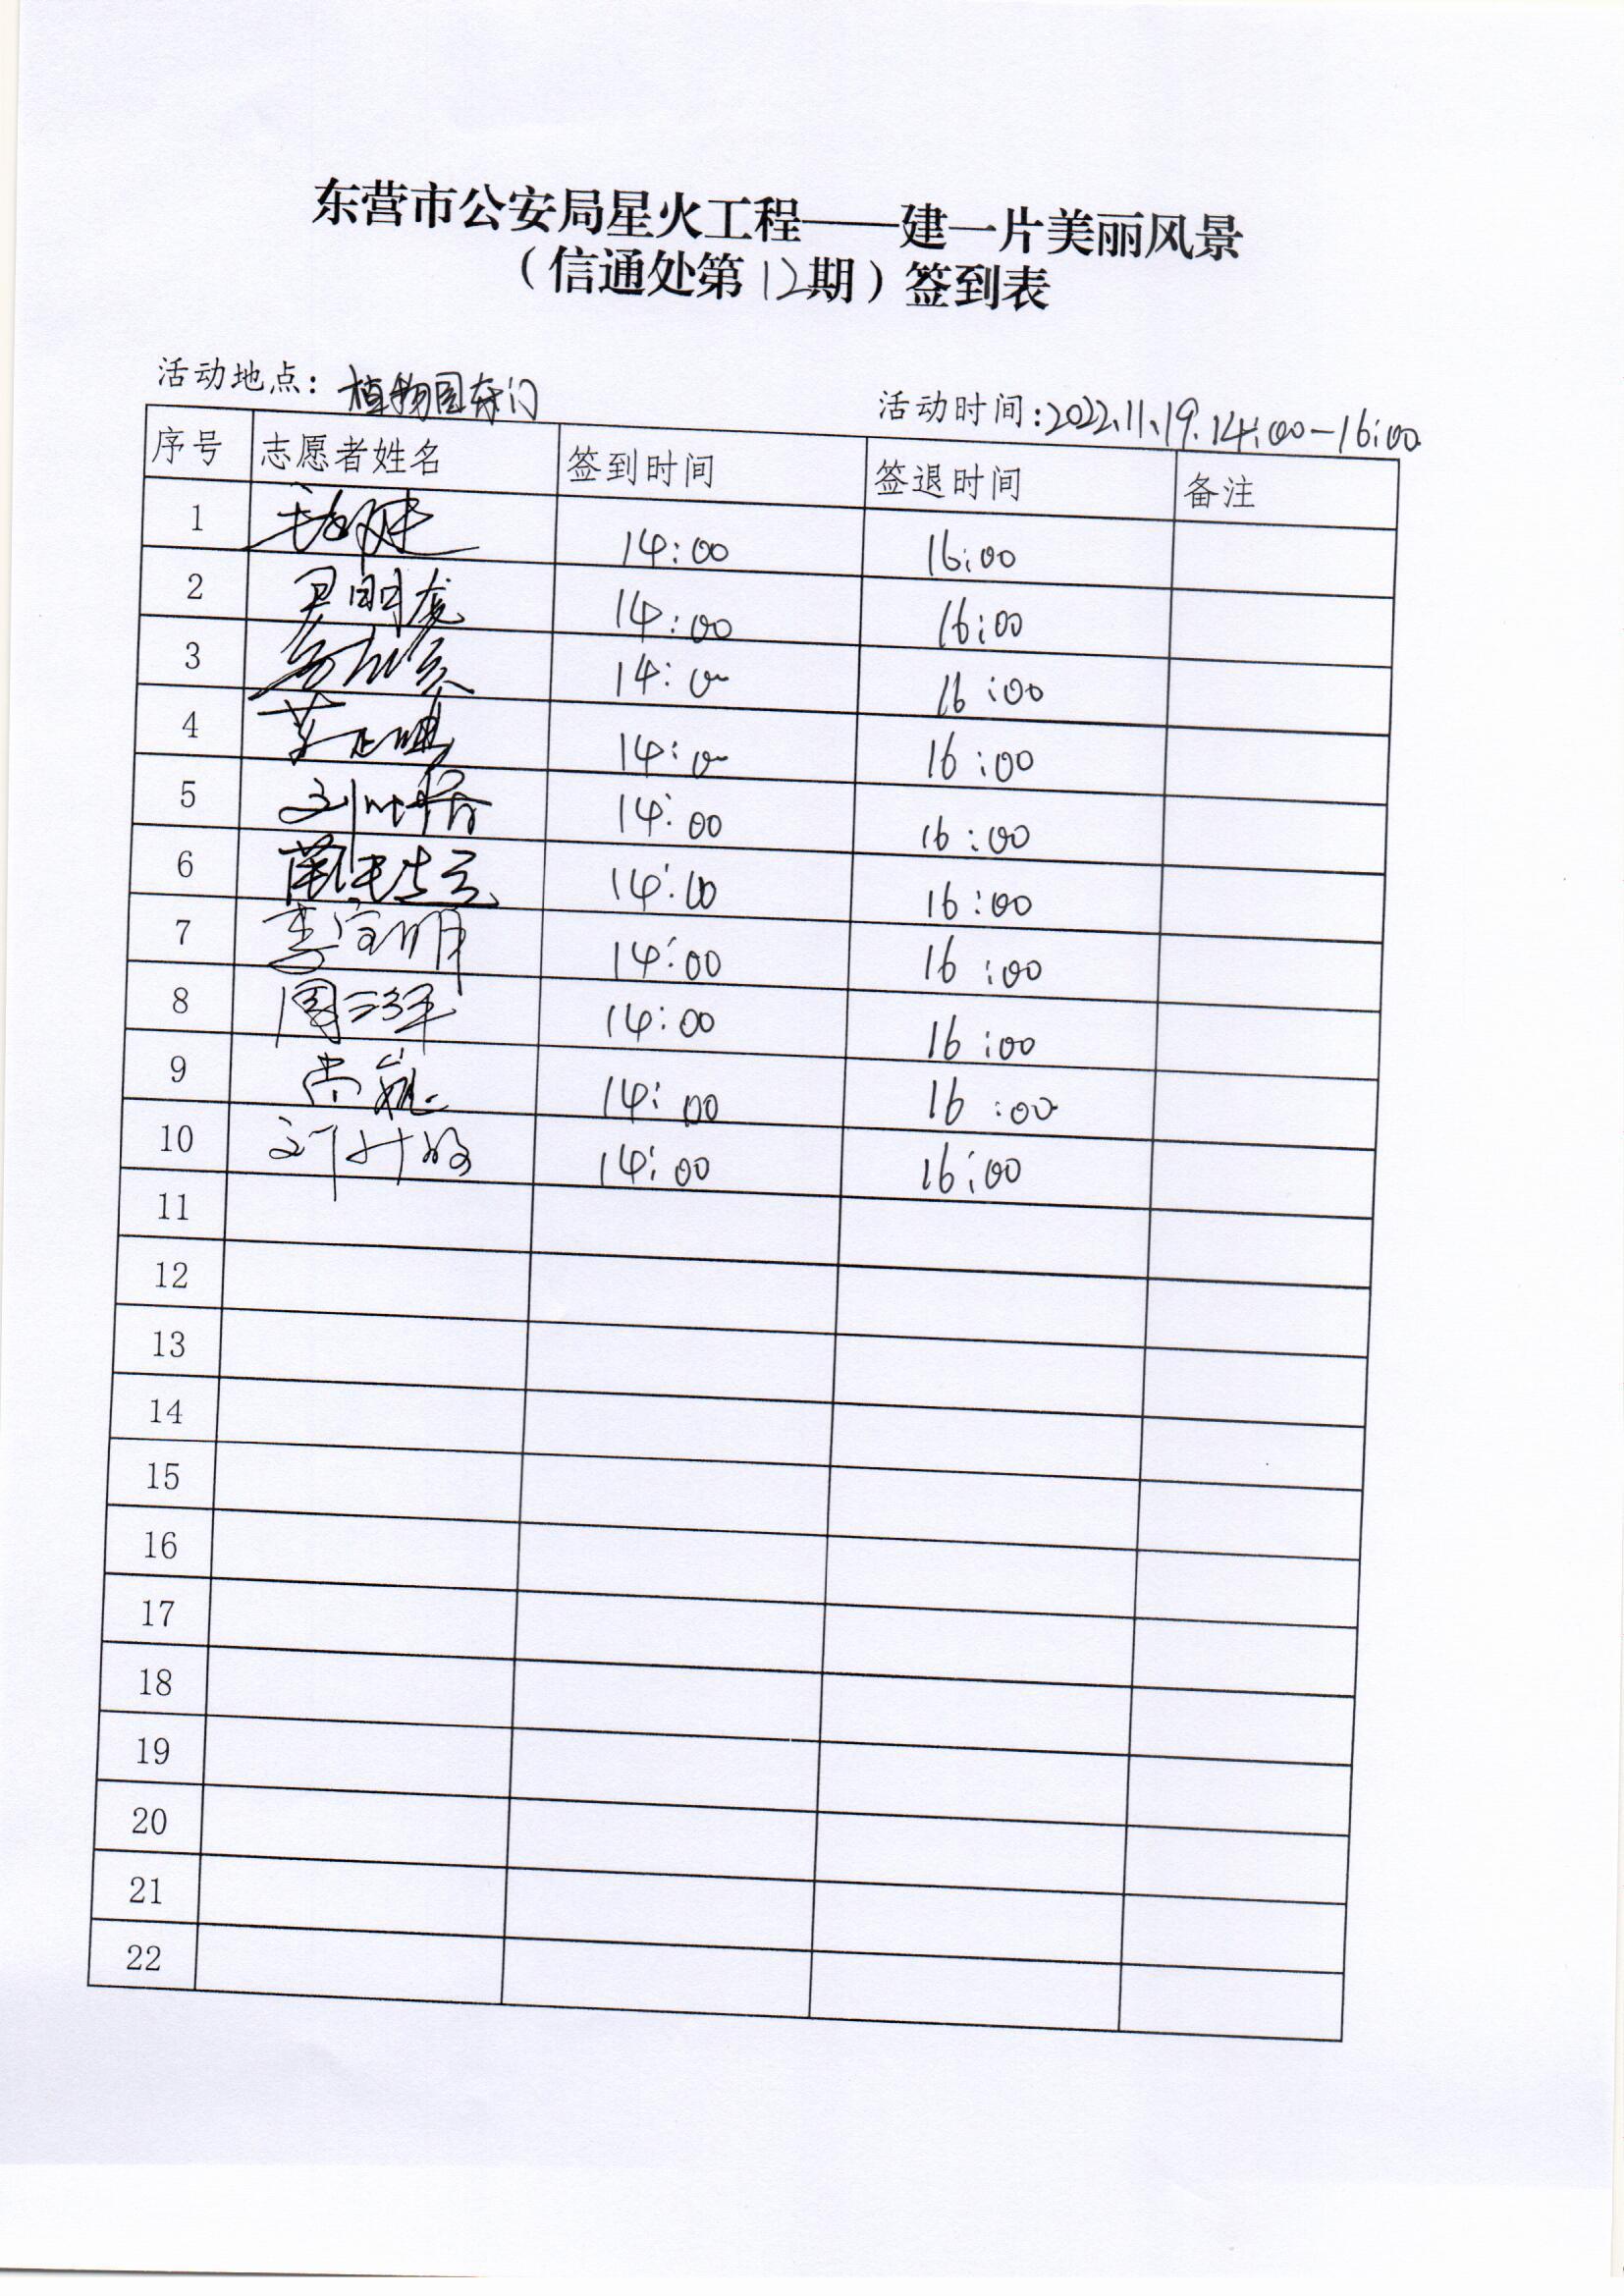 东营市公安局星火工程——建一片美丽风景
（信通处第12期）签到表
活动地点：植物园东门 活动时间：2022.11.19.14:00-16:00
序号 志愿者姓名 签到时间 签退时间 备注
1 14:00 16:00
2 尹明庞 14:00 16:00
3 14:00 16:00
4 14:00 16:00
5 14:00 16:00
6 14:00 16:00
7 李宝明 14:00 16:00
8 14:00 16:00
9 尚巍 14:00 16:00
10 14:00 16:00
11
12
13
14
15
16
17
18
19
20
21
22